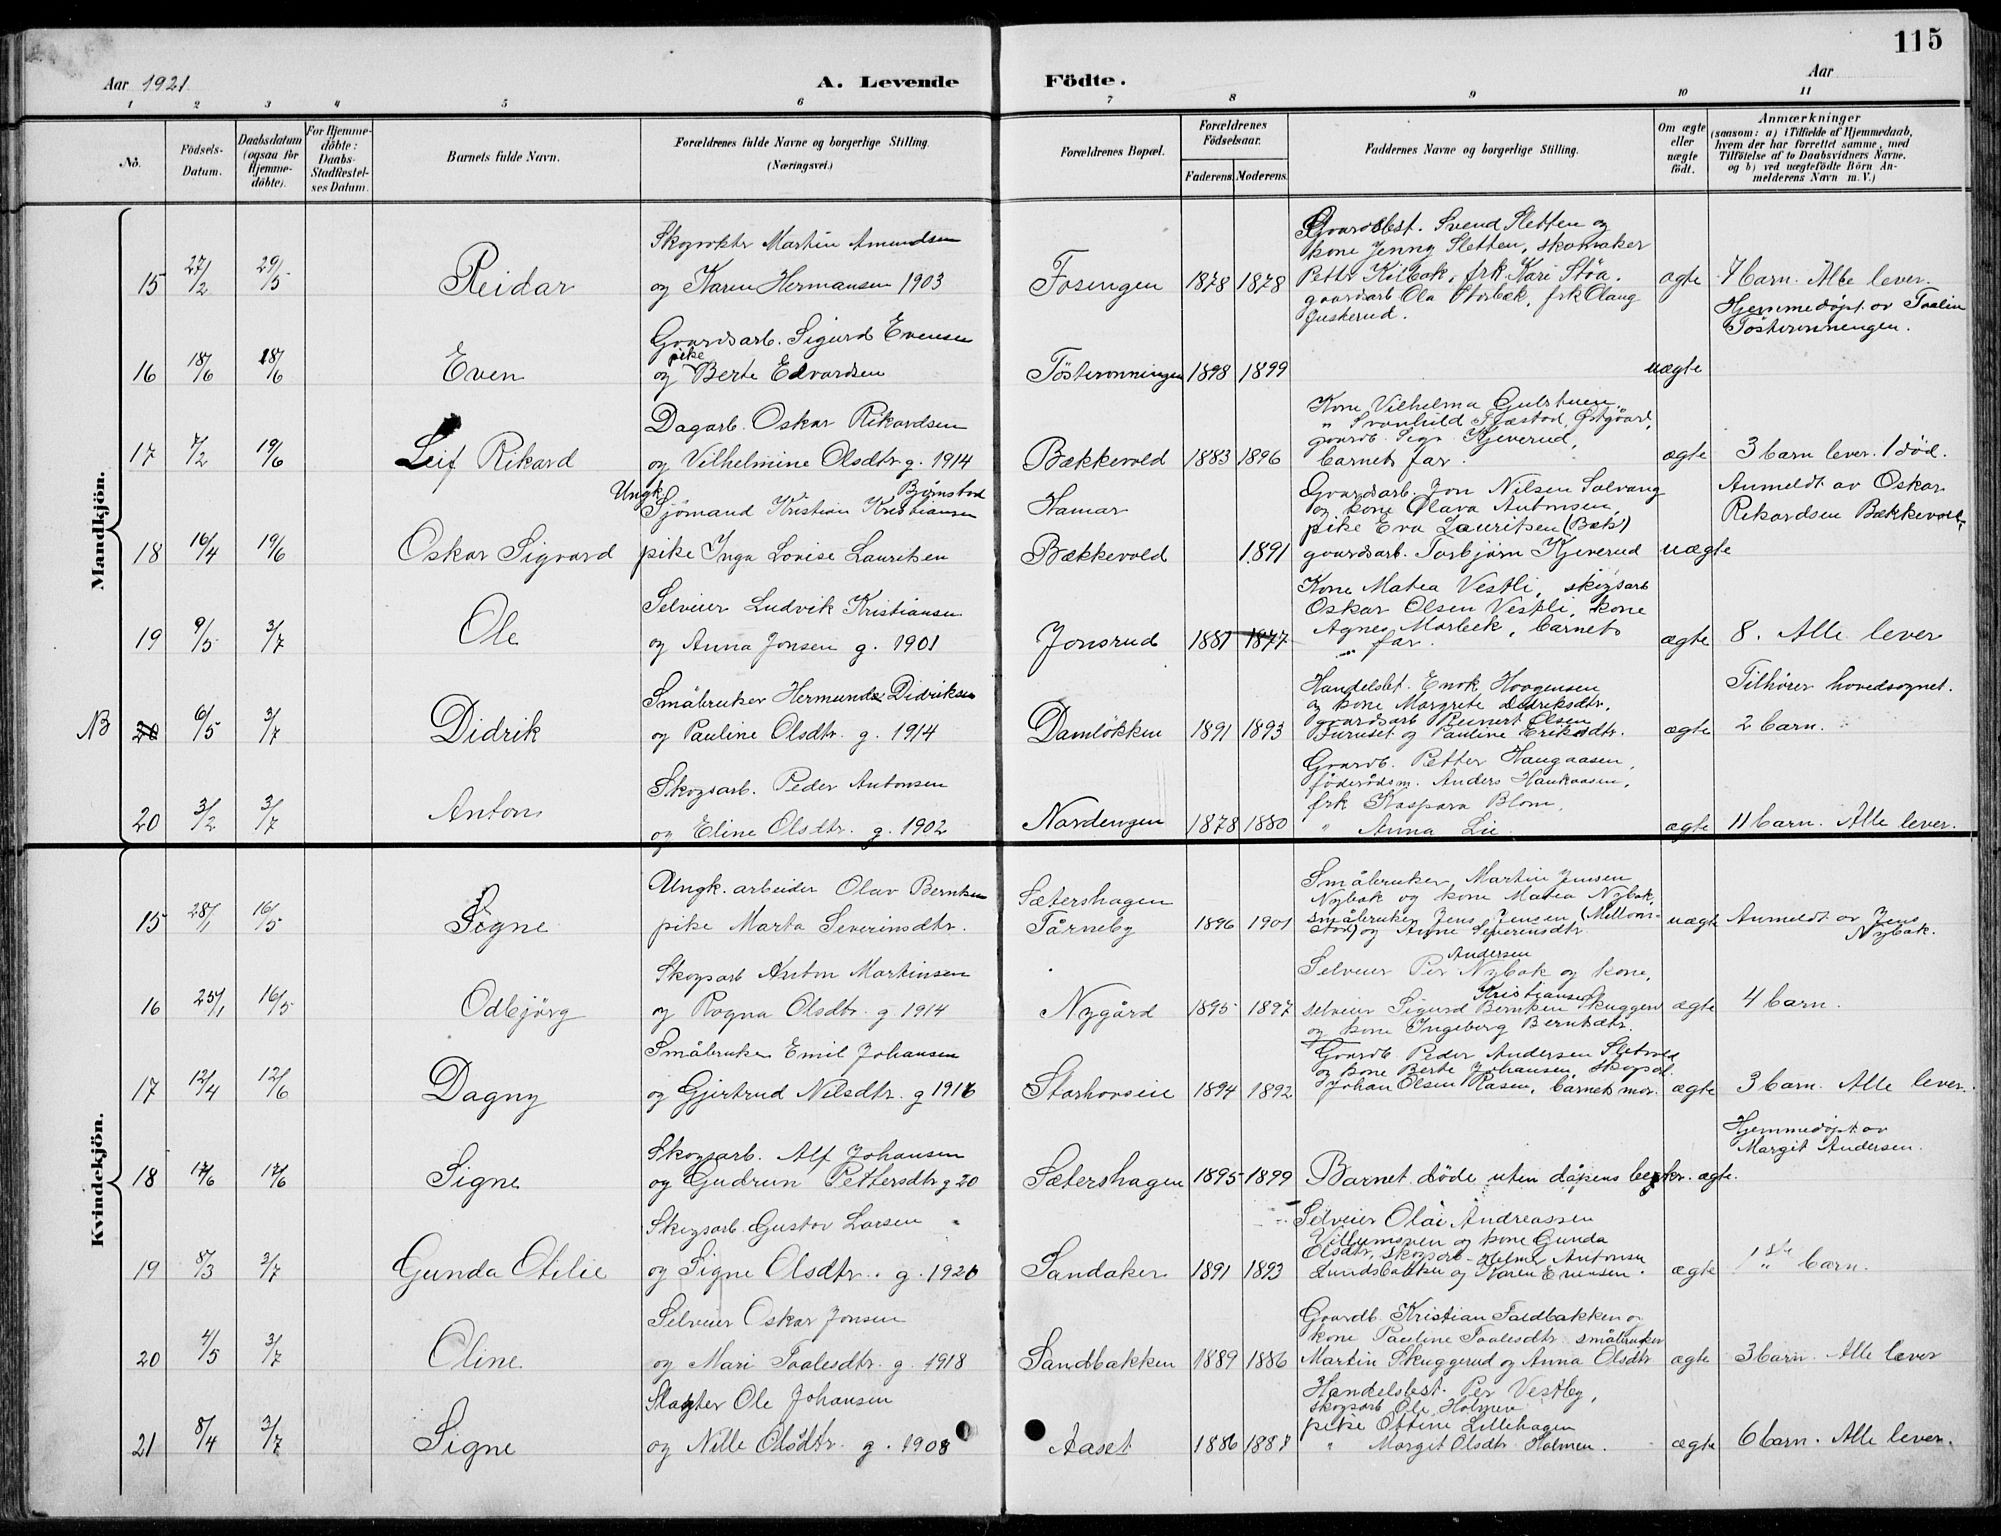 115
Aar 1921
A. Levende
Födte.
Aar
1 2 3 4 5 6 7 8 9 10 11
No.
Födsels-
Datum.
Daabsdatum
(ogsaa for
Hjemme-
döbte).
For Hjemme-
döbte:
Daabs-
Stadfæstel-
ses Datum.
Barnets fulde Navn.
Forældrenes fulde Navne og borgerlige Stilling.
(Næringsvei.)
Forældrenes Bopæl.
Forældrenes
Födselsaar.
Faderens. Moderens.
Faddernes Navne og borgerlige Stilling.
Om ægte
eller
uægte
födt.
Anmærkninger
(saasom: a) i Tilfælde af Hjemmedaab,
hvem der har forrettet samme, med
Tilföielse af to Daabsvidners Navne.
og b) ved uægtefödte Börn An-
melderens Navn m. V.)
Mandkjön.
15 27/2 29/5 Reidar
Skogvokter Martin Amundsen
og Karen Hermansen 1903
Fosengen 1878 1878
Gaardbest. Svend Sletten og
kone Jenny Sletten, skomaker
Petter Kilbak, frk Kari Stöa.
gaardsarb Ola Storbæk, frk Olaug
Juskerud.
ægte 7 barn. Alle lever.
16 18/6 18/6 Even
Gaardsarb. Sigurd Evensen
pike
og Berte Edvardsen
Tösteronningen 1898 1899
uægte
Hjemmedøpt av Taalin
Tösteronningen.
17 7/2 19/6 Leif Rikard
Dagarb. Oskar Rikardsen
og Vilhelmine Olsdtr. g. 1914
Bækkevold 1883 1896
Kone Vilhelma Gulstuen,
" Svanhild Fjæstad, Østgård,
gaardb. Kjeverud,
barnets far.
ægte 3 barn lever. 1 död.
18 16/4 19/6 Oskar Sigvard
Ungk. Björnstad
Sjömand Kristian Kristiansen
pike Inga Lovise Lauritsen
Hamar
Bækkevold 1891
Gaardsarb. Jon Nilsen Solvang
og kone Olava Antonsen,
pike Eva Lauritsen (Bæk.)
gaardsarb. Torbjörn Kjeverud
uægte
Anmeldt av Oskar
Rikardsen Bækkevold
19 9/5 3/7 Ole
Selveier Ludvik Kristiansen
og Anna Jonsen g. 1901
Jonsrud 1881 1877
Kone Matea Vestli, skogsarb
Oskar Olsen Vestli, kone
Agnes Morbek, barnets
" far.
ægte 8. Alle lever
NB 20 6/5 3/7 Didrik
Småbruker Hermund Didriksen
og Pauline Olsdtr. g. 1914
Damlökken 1891 1893
Handelsbet. Enok Haagensen
og kone Margrete Didriksdtr,
gaardsarb Reinert Olsen
Furuset og Pauline Eriksdtr.
ægte
Tilhører hovedsognet.
2 barn.
20 3/2 3/7 Anton
Skogsarb. Peder Antonsen
og Eline Olsdtr. g. 1902
Nordengen 1878 1880
Gaardb. Petter Haugaasen,
föderådsm. Anders Haukaasen,
frk Kaspara Blom,
" Anna Lie
ægte 11 barn. Alle lever.
Kvindekjön.
15 28/1 16/5 Signe
Ungk. arbeider Olav Berntsen
pike Marta Severinsdtr.
Sætershagen
Tårneby 1896 1901
Småbruker Martin Jensen
Nybak og kone Matea Nybak,
småbruker Jens Jensen (Mellom-
stad) og Anne Severinsdtr
uægte Anmeldt av Jens
Nybak.
16 25/1 16/5 Odbjörg
Skogsarb Anton Martinsen
og Ragna Olsdtr. g. 1914
Nygård 1895 1897
Andersen
Selveier Per Nybak og kone,
Kristiansen
selveier Sigurd Berntsen Skuggen
og kone Ingeborg Berntsdtr.
ægte 4 barn.
17 12/4 12/6 Dagny
Småbruker Emil Johansen
og Gjertrud Nilsdtr. g 1916
Storhovseie 1894 1892
Gaardb Peder Andersen Sletvold
og kone Berte Johansen, skogsarb.
Johan Olsen Rasen, barnets mor.
ægte 3 barn. Alle lever.
18 17/6 17/6 Signe
Skogsarb. Alf Johansen
og Gudrun Pettersdtr g 20
Sætershagen 1895 1899
Barnet döde uten dåpens bekr. ægte.
Hjemmedöpt av
Margit Andersen.
19 8/3 3/7 Gunda Otilie
Skogsarb. Gustav Larsen
og Signe Olsdtr. g. 1920
Sandaker 1891 1893
Selveier Olai Andreassen
Villumsven og kone Gunda
Olsdtr, skogsarb Helmer Antonsen
Lundsbakken og Karen Evensen.
ægte 1ste barn.
20 4/5 3/7 Oline
Selveier Oskar Jonsen
og Mari Taalesdtr. g. 1918
Sandbakken 1889 1886
Gaardb. Kristian Faldbakken og
kone Pauline Taalesdtr. småbruker
Martin Skuggerud og Anna Olsdtr
ægte 3 barn. Alle lever
21 8/4 3/7 Signe
Slagter Ole Johansen
og Nille Olsdtr. g. 1908
Aaset 1886 1887
Handelsbest. Per Vestby,
skogsarb Ole Holmen
pike Ottine Lillehagen
" Margit Olsdtr. Holmen.
ægte 6 barn. Alle lever.